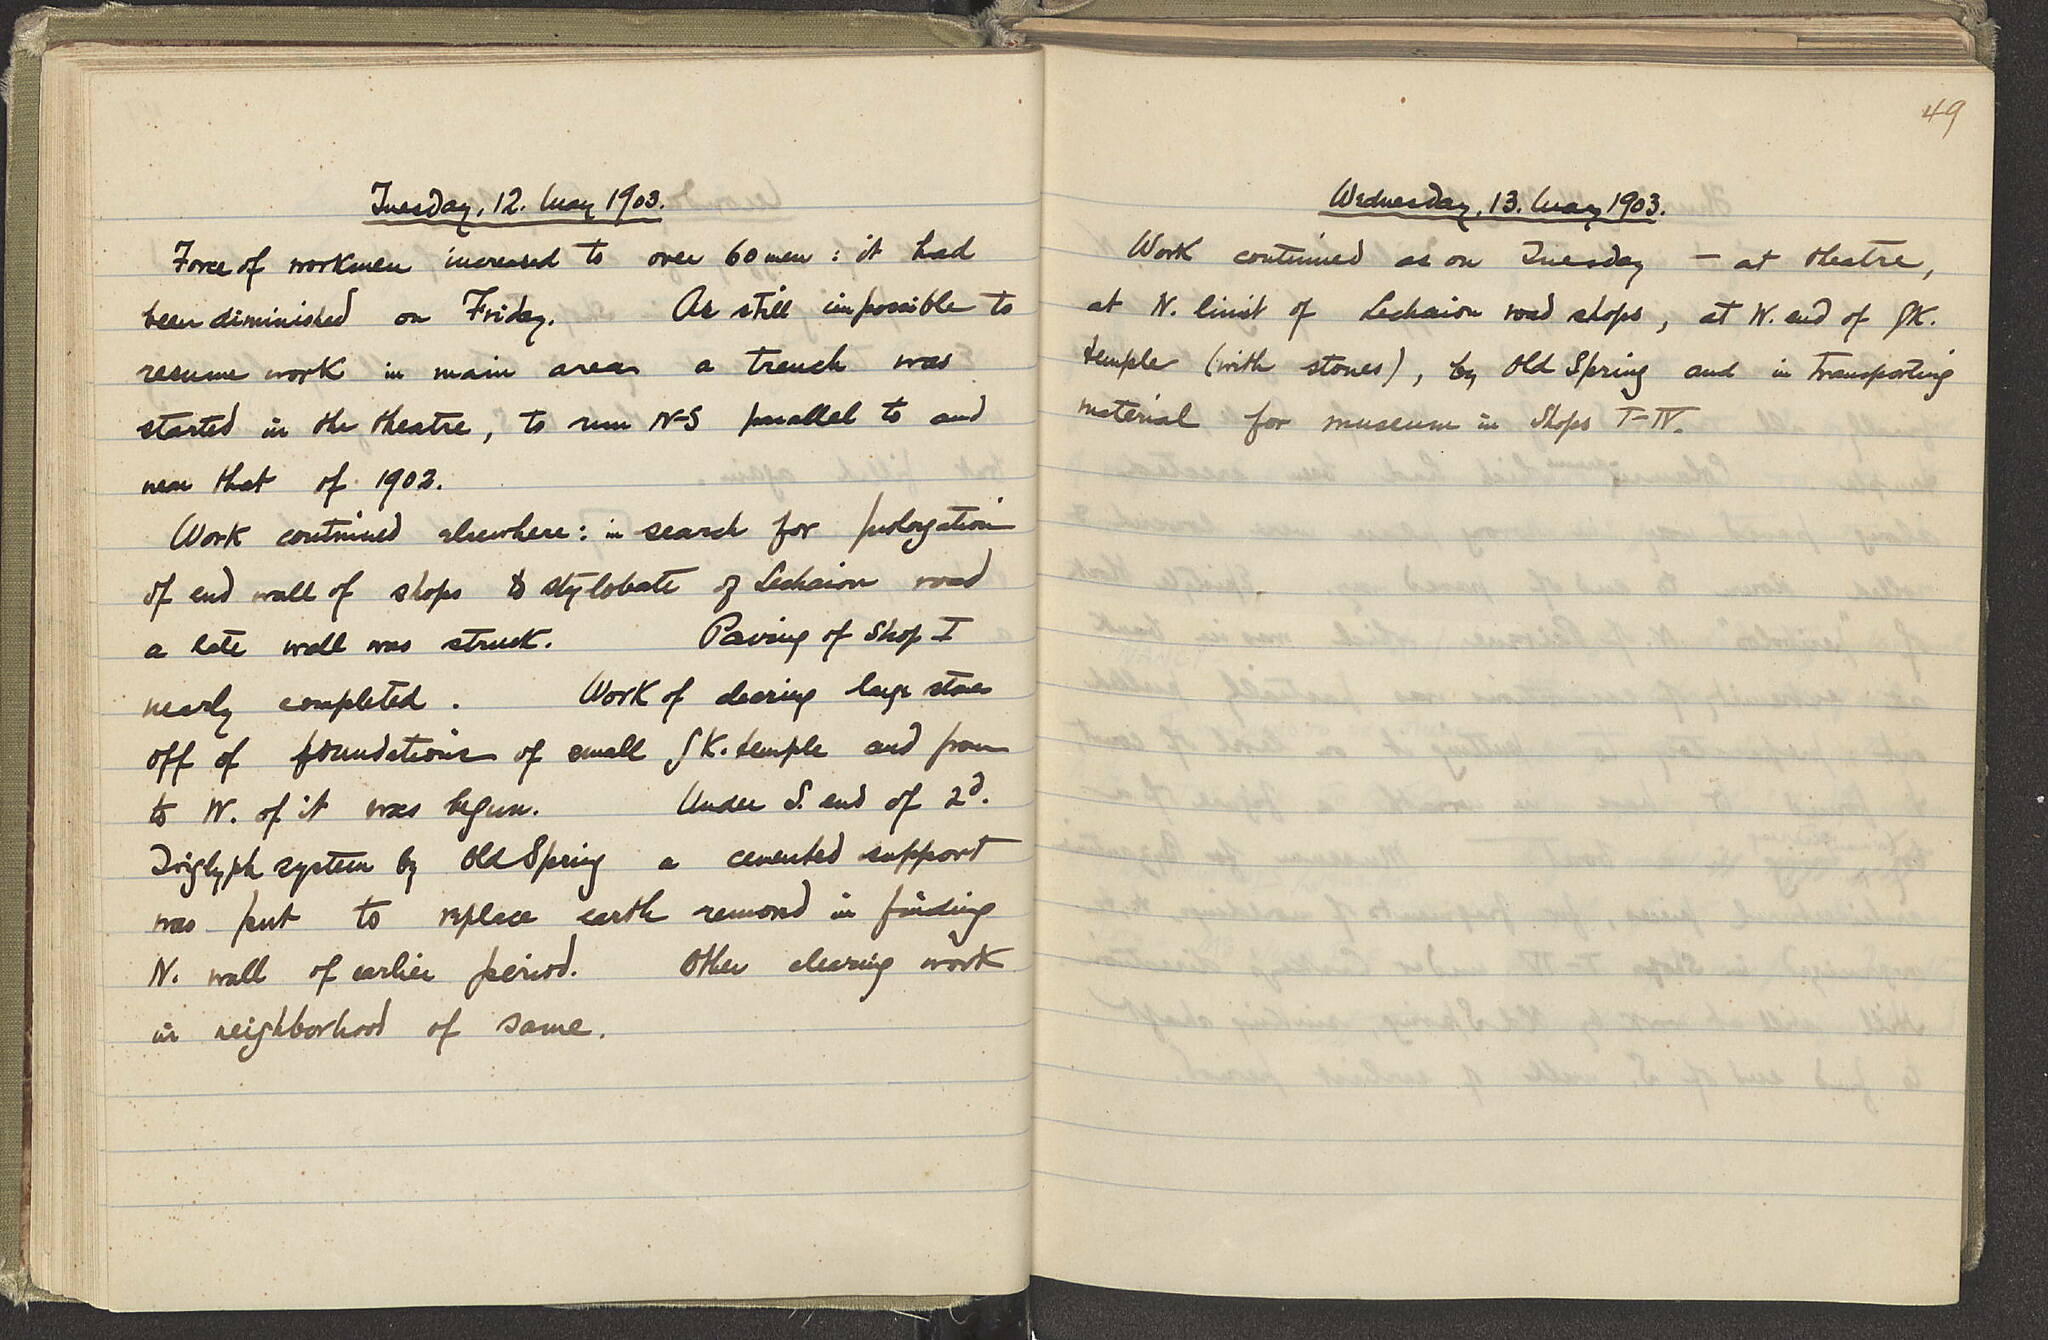 Tuesday, 12. May 1903.
Force of workmen increased to over 60 men : it had
been diminished on Friday. As still impossible to
resume work in main area a trench was
started in the theatre, to run N-S parallel to and
near that of 1902.
Work continued elsewhere : in search for prolongation
of end wall of shops to stylobate of Lechaion road
a late wall was struck. Paving of Shop I
nearly completed. Work of clearing large stones
off of foundations of small GK. temple and from
to W. of it was begun. Under S. end of 2d.
Triglyph system by Old Spring a cemented support
was put to replace earth removed in finding
N. wall of earlier period. Other clearing work
in neighborhood of same.
49
Wednesday, 13. May 1903.
Work continued as on Tuesday – at theatre,
at N. limit of Lechaion road shops, at W. end of GK.
temple (with stones), by Old Spring and in transporting
material for museum in Shops I-IV.